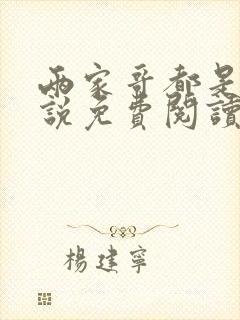 兩家哥都是
說免費閱讀
楊建寧